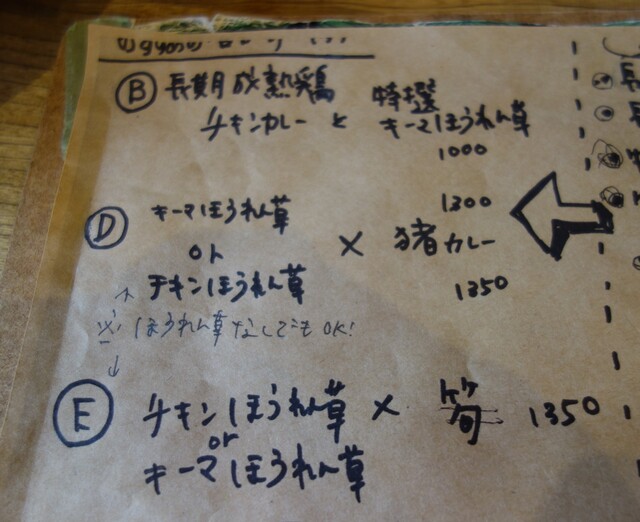 Ⓑ 長期放熟鶏 特選
チキンカレー と キーマほうれん草
1000
Ⓓ キーマほうれん草 1300
or × 猪カレー
チキンほうれん草 1350
※ ほうれん草なしでもOK!
Ⓔ チキンほうれん草 × 筍 1350
or
キーマほうれん草